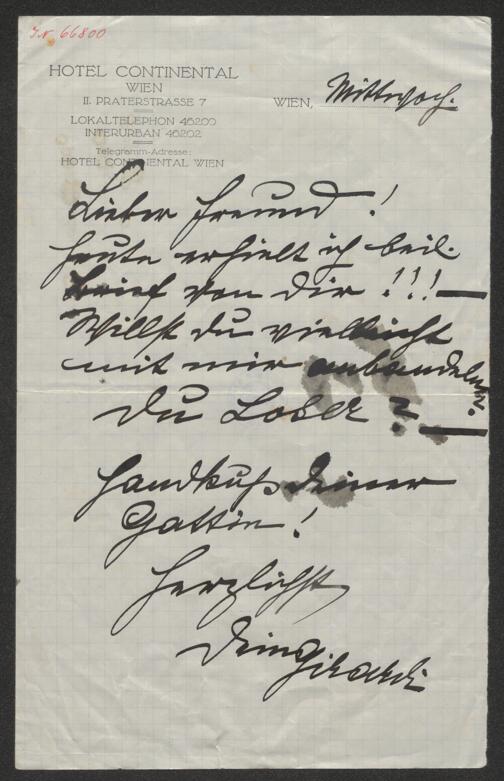 I.N. 66800
HOTEL CONTINENTAL
WIEN
II. PRATERSTRASSE 7
LOKALTELEPHON 46200
INTERURBAN 46202
Telegramm-Adresse:
HOTEL CONTINENTAL WIEN
WIEN, Mittwoch.
Lieber Freund!
Heute erhielt ich beil.
Brief von Dir!!! —
Willst du vielleicht
mit mir anbandeln?
Du Loser? —
Handkuß Deiner
Gattin!
Herzlichst
Dein Girardi